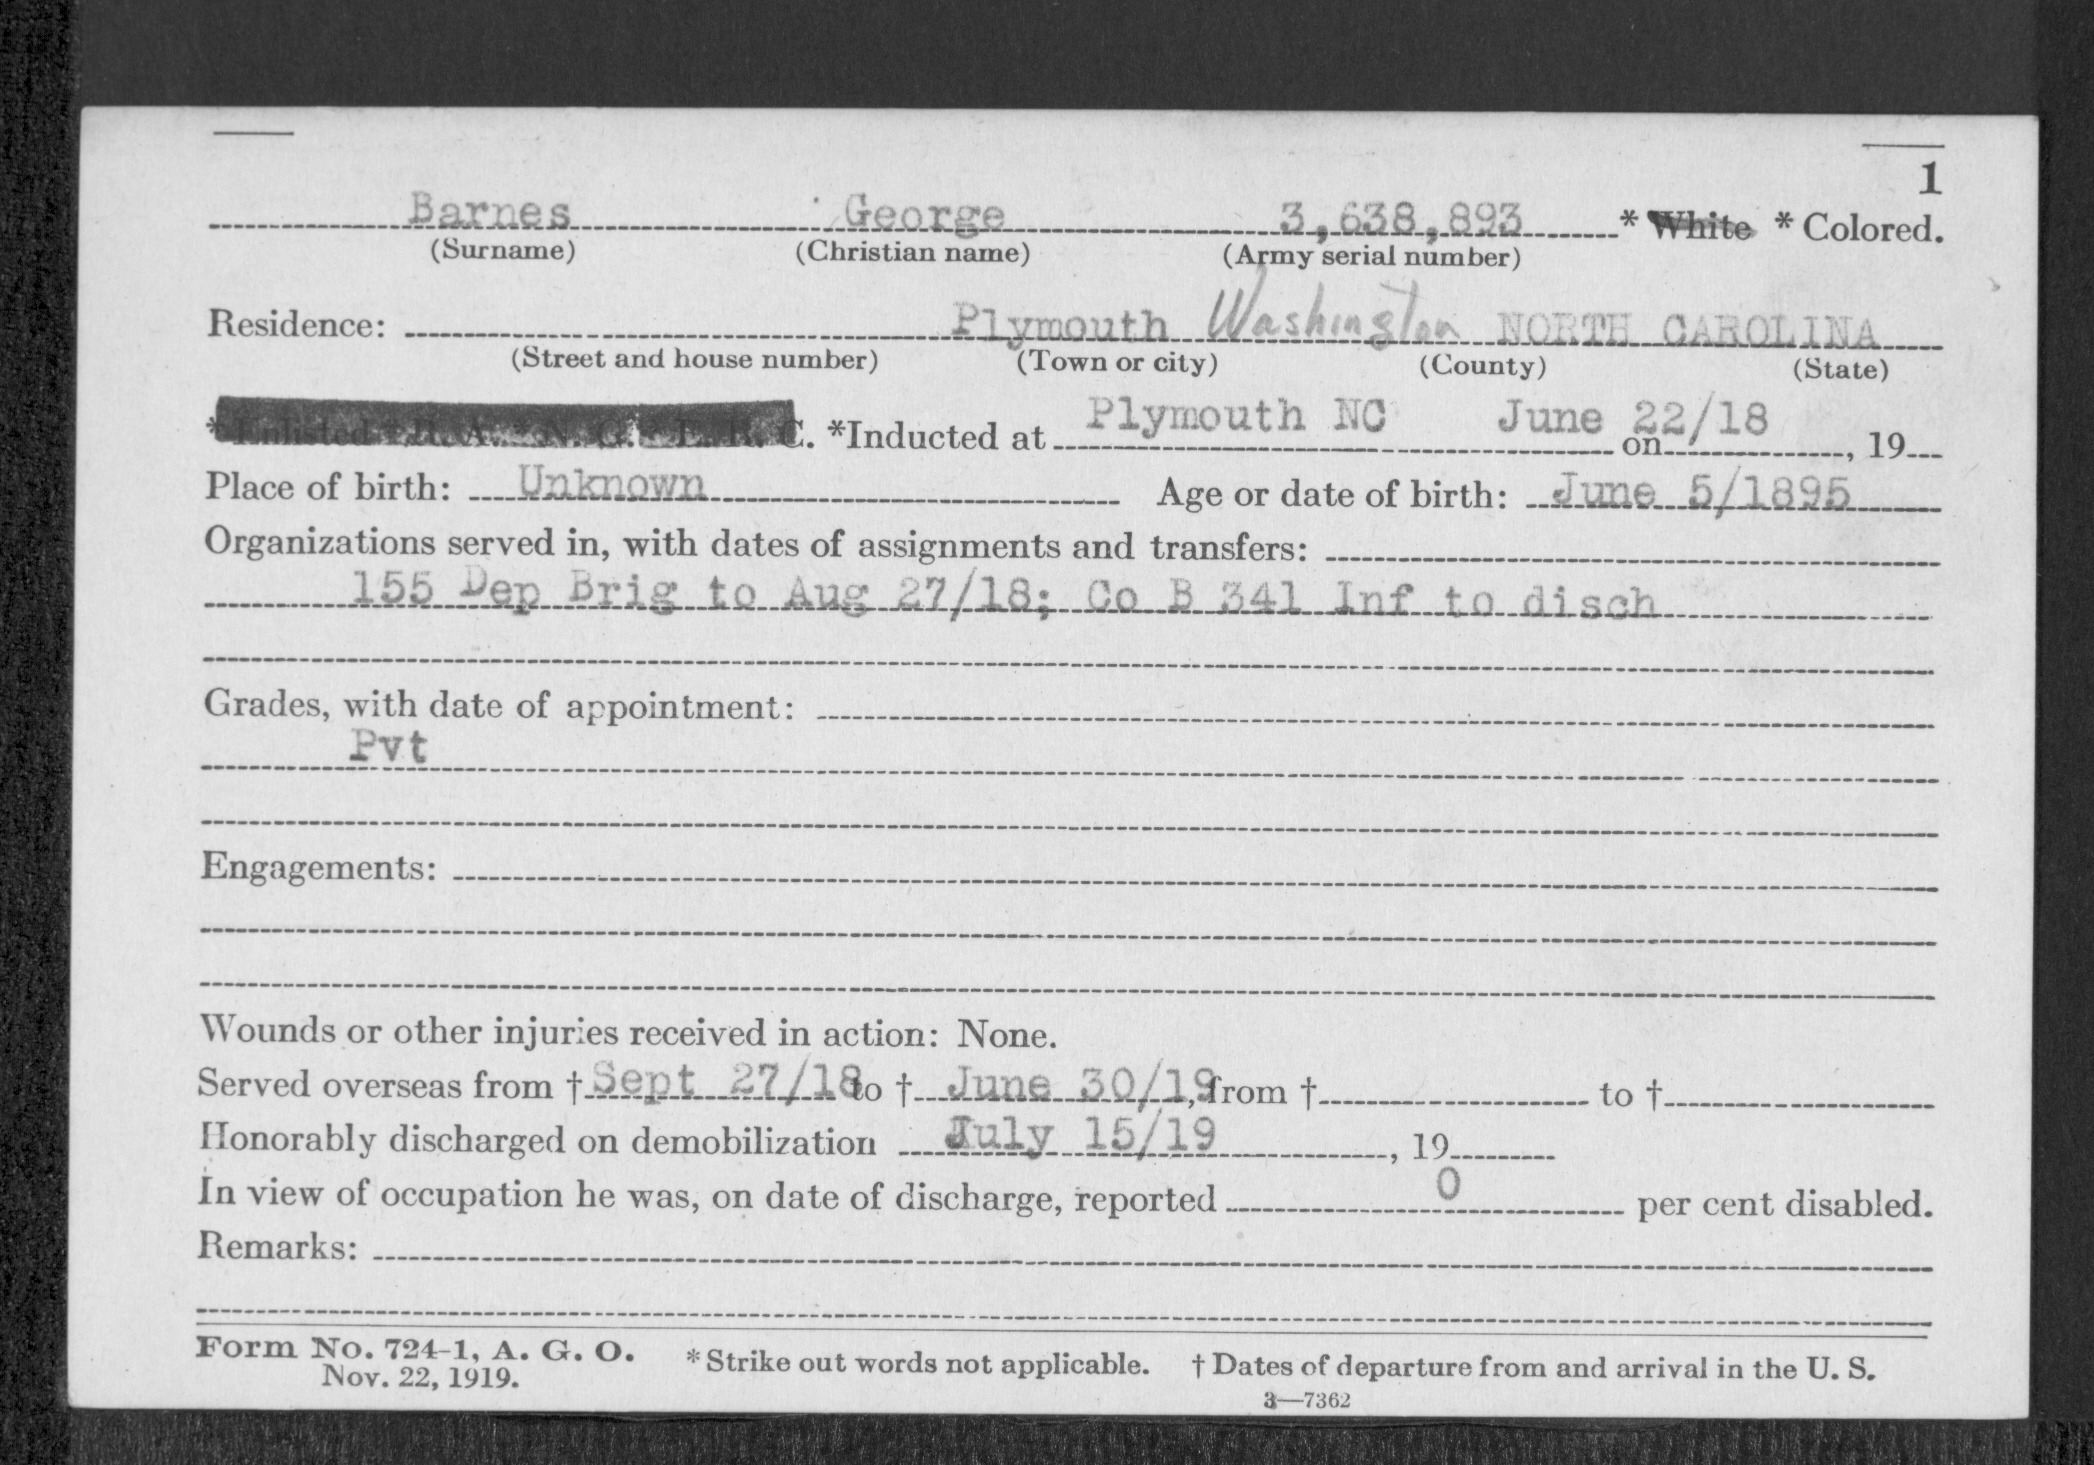 1
Barnes George 3,638,893 * White * Colored.
(Surname) (Christian name) (Army serial number)
Residence: Plymouth Washington NORTH CAROLINA
(Street and house number) (Town or city) (County) (State)
* Enlisted * R. A. * N. G. * E. R. C. *Inducted at Plymouth NC on June 22/18, 19
Place of birth: Unknown Age or date of birth: June 5/1895
Organizations served in, with dates of assignments and transfers:
155 Dep Brig to Aug 27/18; Co B 341 Inf to disch
Grades, with date of appointment:
Pvt
Engagements:
Wounds or other injuries received in action: None.
Served overseas from † Sept 27/18 to † June 30/19, from † to †
Honorably discharged on demobilization July 15/19, 19
In view of occupation he was, on date of discharge, reported 0 per cent disabled.
Remarks:
Form No. 724-1, A. G. O. * Strike out words not applicable. † Dates of departure from and arrival in the U. S.
Nov. 22, 1919.
3—7362